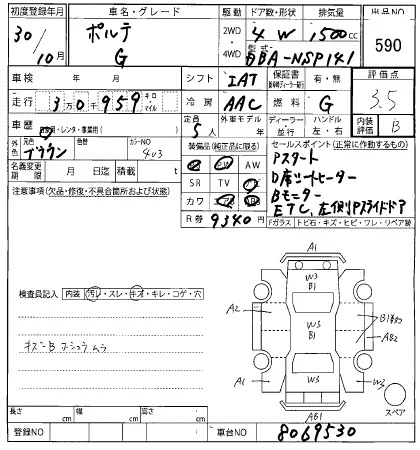 初度登録年月 車名・グレード 駆動 ドア数・形状 排気量 出品NO
30/10月 ポルテ G 2WD 4WD 4 W 1500cc 590
型式 DBA-NSP141
車検 年 月 シフト IAT 保証書 有・無 評価点
走行 3万0千959 キロ・マイル 冷房 AAC 燃料 G 3.5
車歴 自家用・レンタ・事業用( ) 定員 5人 外車モデル 年 ディーラー 並行 ハンドル 左・右 内装評価 B
外色 元色 ブラウン 色替 カラーNO 4U3 装備品(純正品に限る) セールスポイント(正常に作動するもの)
名義変更期限 月 日迄 積載 t PW
SR TV
カワ
R券 9340円
Pスタート
D席シートヒーター
Bモニター
ETC, 左側Pスライドドア
注意事項(欠品・修復・不具合箇所および状態)
Fガラス トビ石・キズ・ヒビ・ワレ・リペア跡
検査員記入 内装 汚レ・スレ・キズ・キレ・コゲ・穴
A1
W3
B1
A2
W3
B1
AB2
A1
W3
W3
AB1
スペア
長さ cm 幅 cm 高さ cm
登録NO 車台NO 8069530